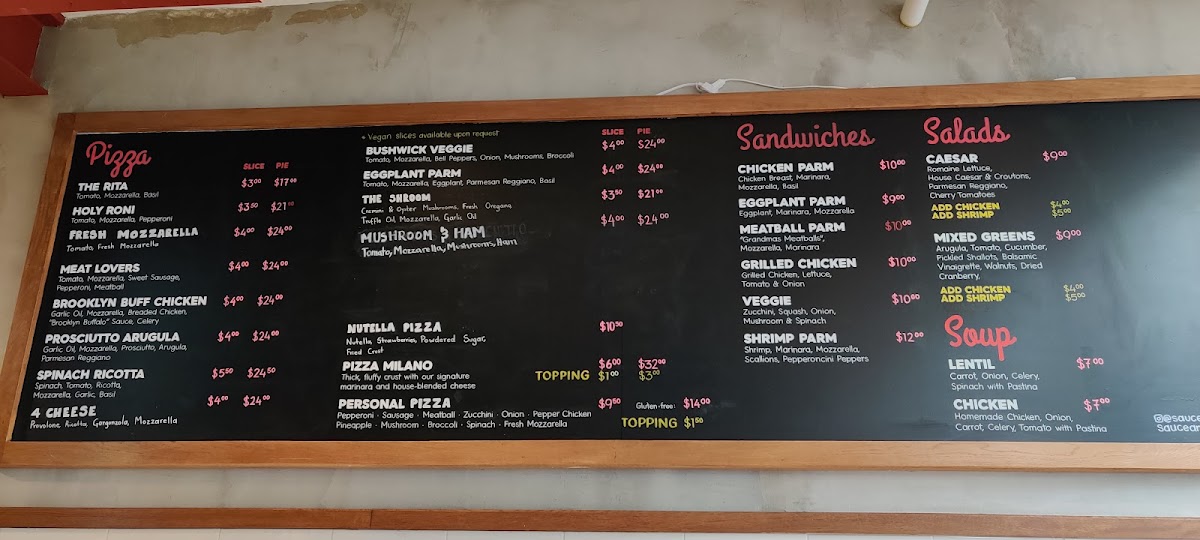 Pizza
SLICE PIE
THE RITA $3⁰⁰ $17⁰⁰
Tomato, Mozzarella, Basil
HOLY RONI $3⁵⁰ $21⁵⁰
Tomato, Mozzarella, Pepperoni
FRESH MOZZARELLA $4⁰⁰ $24⁰⁰
Tomato, Fresh Mozzarella
MEAT LOVERS $4⁰⁰ $24⁰⁰
Tomato, Mozzarella, Sweet Sausage,
Pepperoni, Meatball
BROOKLYN BUFF CHICKEN $4⁰⁰ $24⁰⁰
Garlic Oil, Mozzarella, Breaded Chicken,
"Brooklyn Buffalo" Sauce, Celery
PROSCIUTTO ARUGULA $4⁰⁰ $24⁰⁰
Garlic Oil, Mozzarella, Prosciutto, Arugula,
Parmesan Reggiano
SPINACH RICOTTA $5⁵⁰ $24⁵⁰
Spinach, Tomato, Ricotta,
Mozzarella, Garlic, Basil
4 CHEESE $4⁰⁰ $24⁰⁰
Provolone, Ricotta, Gorgonzola, Mozzarella
* Vegan slices available upon request
SLICE PIE
BUSHWICK VEGGIE $4⁰⁰ $24⁰⁰
Tomato, Mozzarella, Bell Peppers, Onion, Mushrooms, Broccoli
EGGPLANT PARM $4⁰⁰ $24⁰⁰
Tomato, Mozzarella, Eggplant, Parmesan Reggiano, Basil
THE SHROOM $3⁵⁰ $21⁰⁰
Cremini & Oyster Mushrooms, Fresh Oregano,
Truffle Oil, Mozzarella, Garlic Oil
MUSHROOM & HAM $4⁰⁰ $24⁰⁰
Tomato, Mozzarella, Mushrooms, Ham
NUTELLA PIZZA $10⁵⁰
Nutella, Strawberries, Powdered Sugar,
Fried Crust
PIZZA MILANO $6⁰⁰ $32⁰⁰
Thick, fluffy crust with our signature
marinara and house-blended cheese
TOPPING $1⁰⁰ $3⁰⁰
PERSONAL PIZZA $9⁵⁰ Gluten-free: $14⁰⁰
Pepperoni · Sausage · Meatball · Zucchini · Onion · Pepper Chicken
Pineapple · Mushroom · Broccoli · Spinach · Fresh Mozzarella
TOPPING $1⁵⁰
Sandwiches
CHICKEN PARM $10⁰⁰
Chicken Breast, Marinara,
Mozzarella, Basil
EGGPLANT PARM $9⁰⁰
Eggplant, Marinara, Mozzarella
MEATBALL PARM $10⁰⁰
"Grandmas Meatballs",
Mozzarella, Marinara
GRILLED CHICKEN $10⁰⁰
Grilled Chicken, Lettuce,
Tomato & Onion
VEGGIE $10⁰⁰
Zucchini, Squash, Onion,
Mushroom & Spinach
SHRIMP PARM $12⁰⁰
Shrimp, Marinara, Mozzarella,
Scallions, Pepperoncini Peppers
Salads
CAESAR $9⁰⁰
Romaine Lettuce,
House Caesar & Croutons,
Parmesan Reggiano,
Cherry Tomatoes
ADD CHICKEN $4⁰⁰
ADD SHRIMP $5⁰⁰
MIXED GREENS $9⁰⁰
Arugula, Tomato, Cucumber,
Pickled Shallots, Balsamic
Vinaigrette, Walnuts, Dried
Cranberry,
ADD CHICKEN $4⁰⁰
ADD SHRIMP $5⁰⁰
Soup
LENTIL $7⁰⁰
Carrot, Onion, Celery,
Spinach with Pastina
CHICKEN $7⁰⁰
Homemade Chicken, Onion,
Carrot, Celery, Tomato with Pastina
@sauce
Saucear